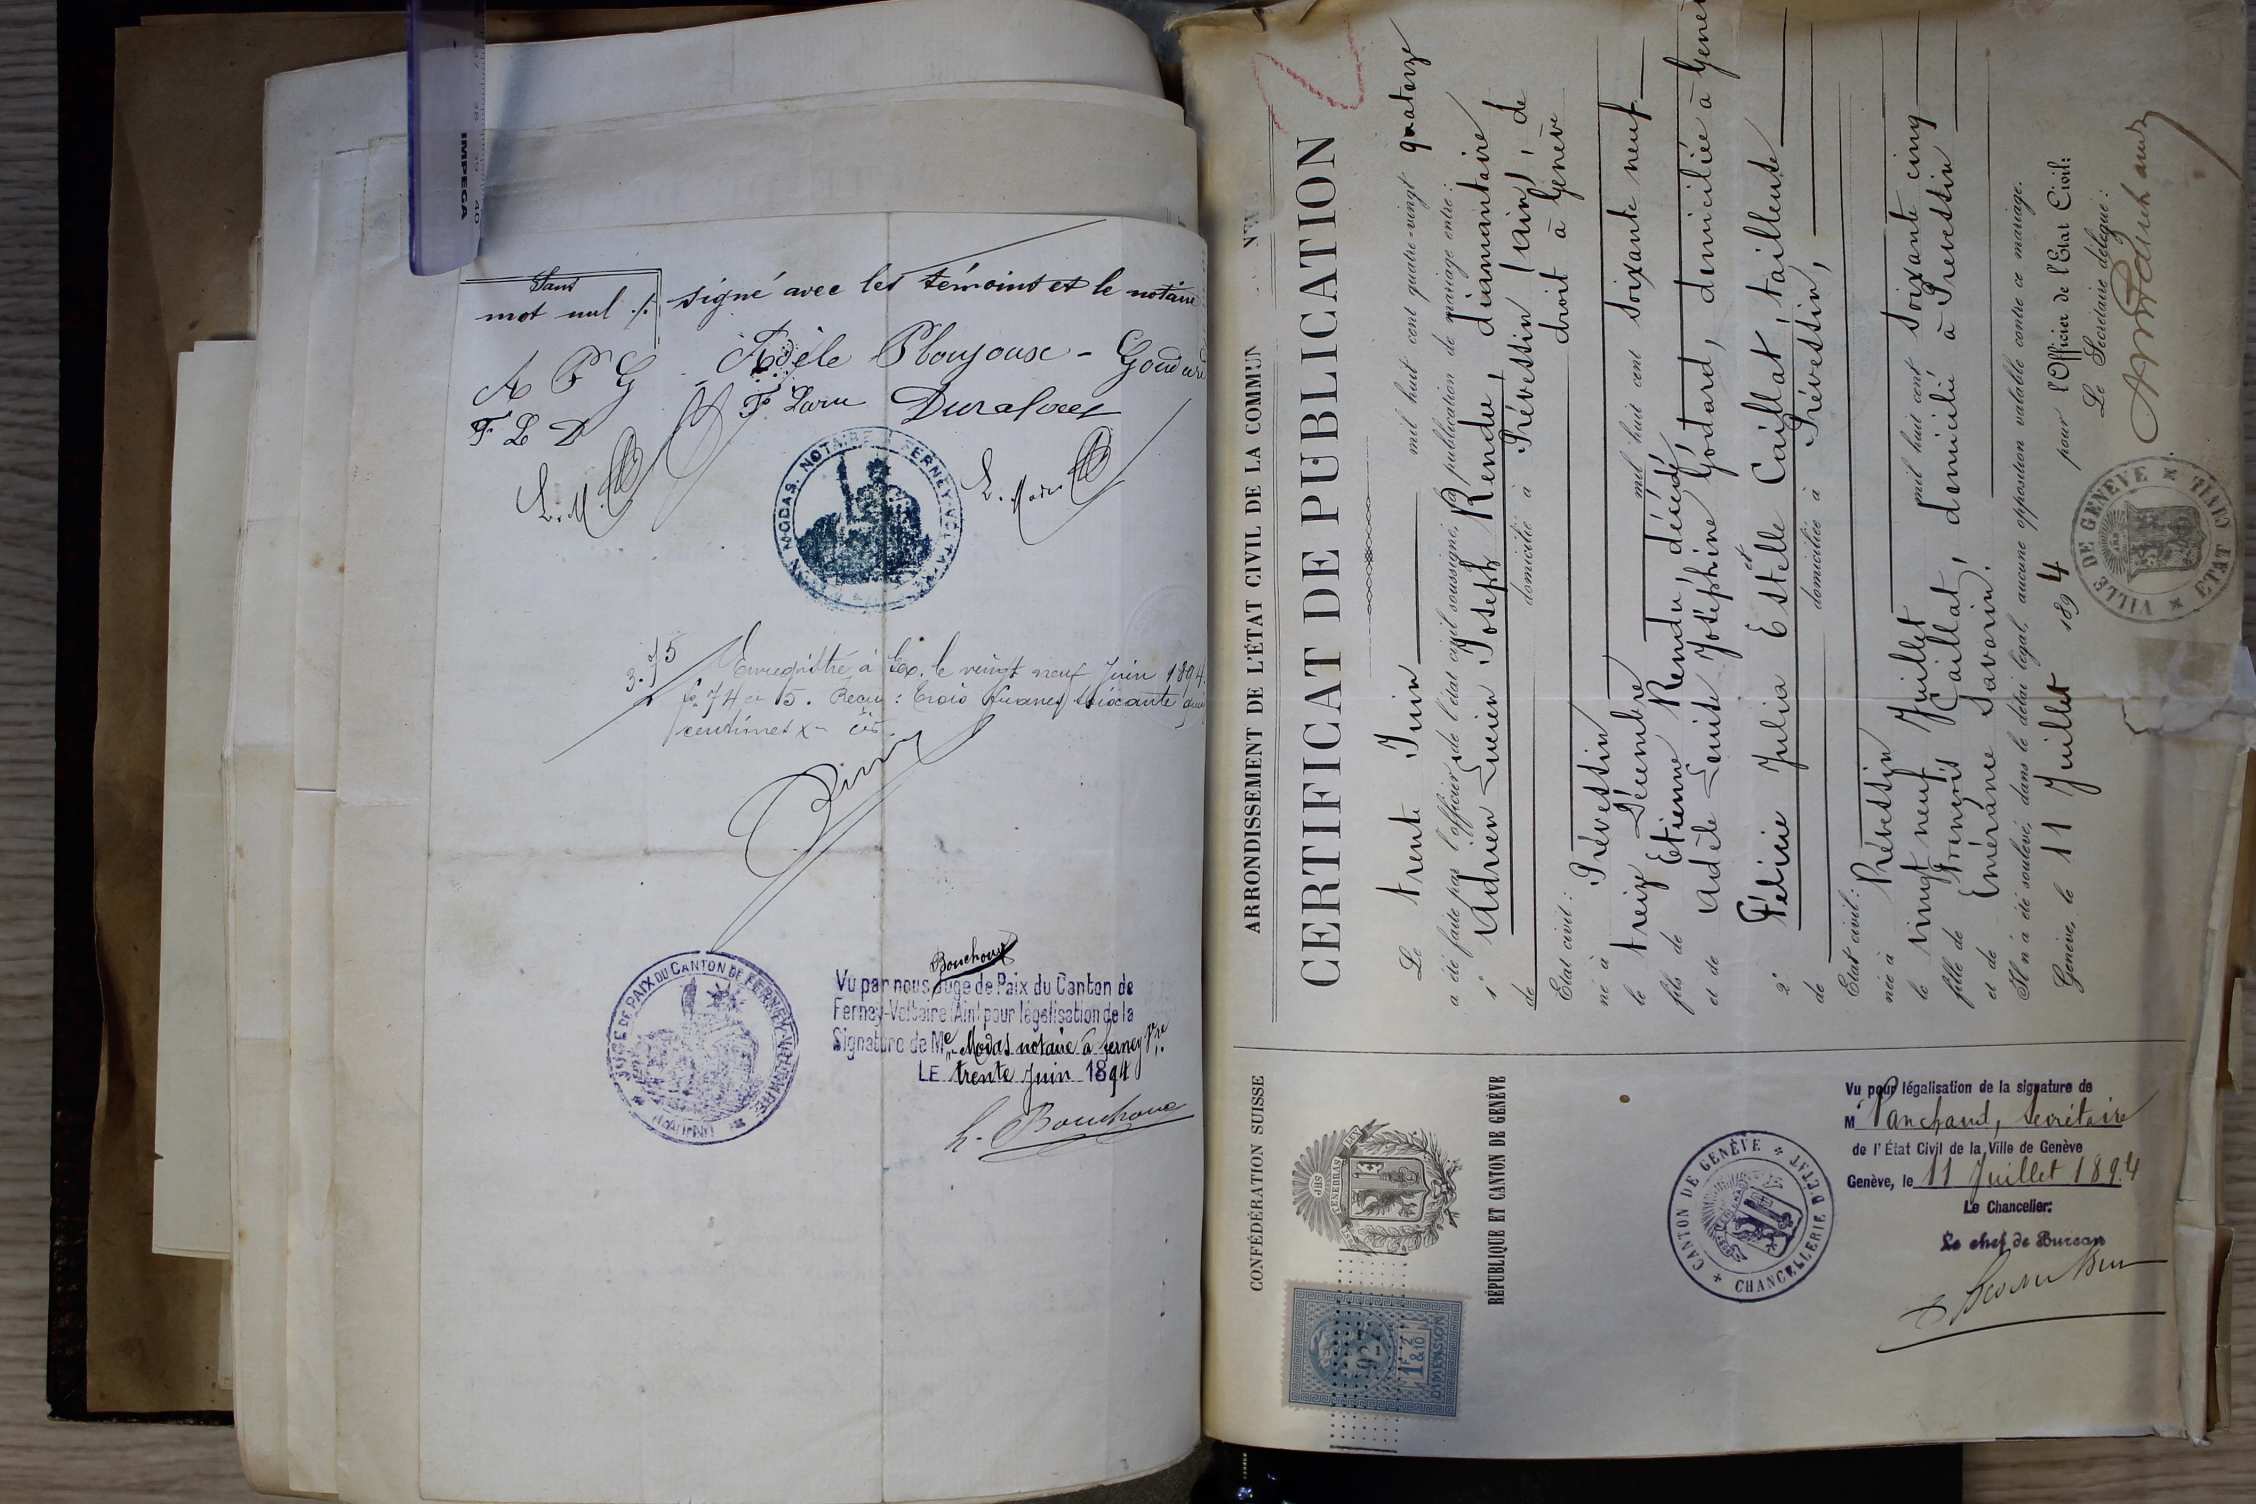 IMPEGA
40
Sans
mot nul ./.
signé avec les témoins et le notaire
A P G
Adèle Ploujoux - Godard
F. L D
F. Laru Duraffourt
L. M.
L. Modas
MODAS, NOTAIRE A FERNEY-VOLTAIRE
3.75
Enregistré à Gex, le vingt neuf Juin 1894.
f° 74 c 5. Reçu : Trois francs soixante quinze
centimes
JUGE DE PAIX DU CANTON DE FERNEY-VOLTAIRE
Bouchoux
Vu par nous Juge de Paix du Canton de
Ferney-Voltaire (Ain) pour légalisation de la
Signature de Me Modas notaire à Ferney Vre
LE trente Juin 1894
h. Bouchoux
ARRONDISSEMENT DE L'ÉTAT CIVIL DE LA COMMUN
CERTIFICAT DE PUBLICATION
Le trente Juin mil huit cent quatre-vingt quatorze
a été faite par l'officier de l'état civil soussigné, la publication de mariage entre :
1° Adrien Lucien Joseph Rendu, diamantaire
de domicilié à Prévessin (Ain), de
droit à Genève
Etat civil :
né à Prévessin
le treize Décembre mil huit cent soixante neuf
fils de Etienne Rendu, décédé
et de Adèle Louise Joséphine Godard, domiciliée à Genè
et
2° Félicie Julia Estelle Caillat, tailleuse
de domiciliée à Prévessin,
Etat civil :
née à Prévessin
le vingt neuf Juillet mil huit cent soixante cinq
fille de François Caillat, domicilié à Prevessin
et de Emérance Savoin.
Il n'a été soulevé, dans le délai légal, aucune opposition valable contre ce mariage.
Genève, le 11 Juillet 1894
pour l'Officier de l'Etat Civil:
Le Secrétaire délégué :
AmPanchaud
VILLE DE GENÈVE
ETAT CIVIL
CONFÉDÉRATION SUISSE
POST TENEBRAS LUX
RÉPUBLIQUE ET CANTON DE GENÈVE
927
1F 2/10
DIMENSION
CANTON DE GENÈVE
CHANCELLERIE D'ETAT
Vu pour légalisation de la signature de
M Panchaud, Secrétaire
de l'État Civil de la Ville de Genève
Genève, le 11 Juillet 1894
Le Chancelier:
Le chef de Bureau